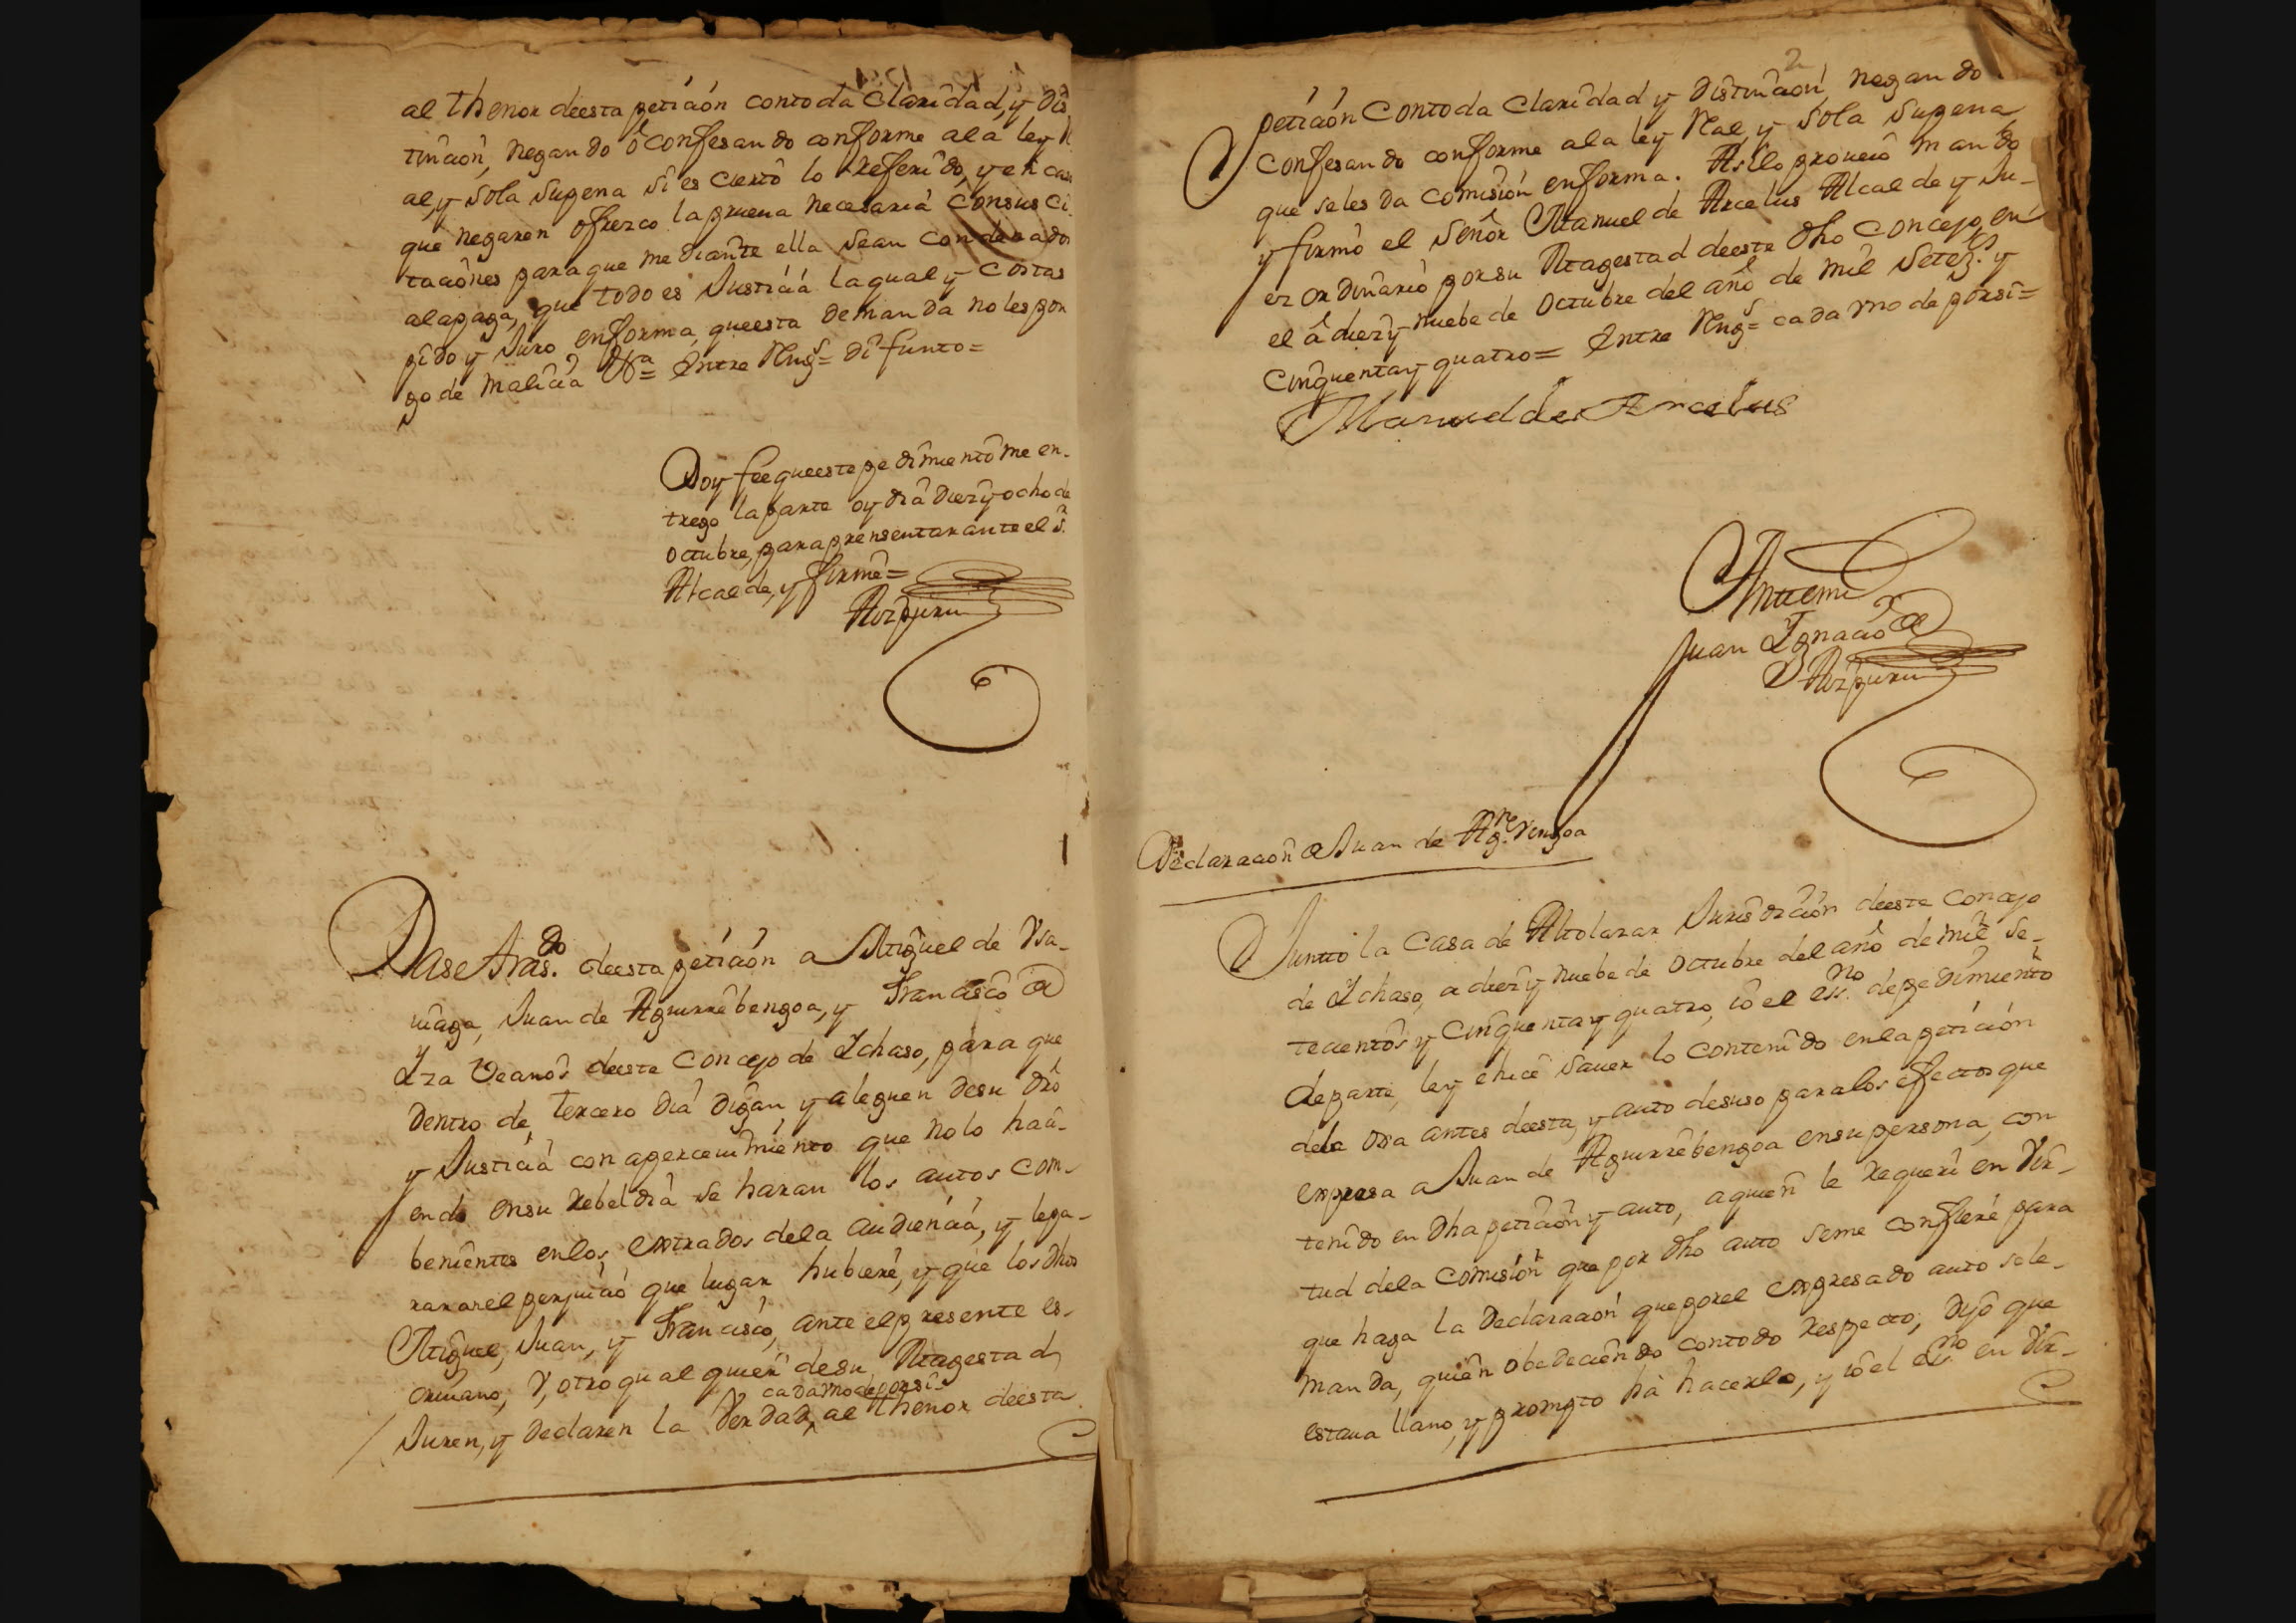 al thenor deesta petiçión contoda claridad, y dis
tinçion, negando ô confesando conforme ala ley R
al, y sola supena si es cierto lo referido, y en cas
que negaren ofrezco la prueua necesaria consus ci
taciones paraque mediante ella sean condenados
alapaga, que todo es Justiçiâ laqual y costas
pido y Juro enforma, queesta demanda noles pon
go de maliçia &ª = Entre Rengs = difunto =
Doy fee queeste pedimiento me en-
trego laparte oy dia diez y ocho de
octubre, para prensentar ante el Sr.
Alcalde, y firmê =
Aizpuru
Dase trasdo. deesta petiçiôn a Miguel de Vsa-
uiaga, Juan de Aguirrebengoa, y Francisco de
Yza veçinos deeste concejo de Ychaso, para que
dentro de terçero dia digan y aleguen desu drô
y Justiçiâ con aperceuimiento que no lo haçi-
endo ensu rebeldia se haran los autos com-
benientes enlos, extrados dela audiençiâ, y lepa-
rarael perjuiçio que lugar hubiere, y que los dhos
Miguel, Juan, y Françisco, ante el presente es-
criuano, V, otro qual quier desu Magestad
cada vno de porsi
Juren, y declaren la verdad, al thenor deesta
2
petiçiôn contoda claridad y distinçion negando
confesando conforme ala ley Real, y sola supena
que seles da comision enforma. Asilo proueiô mando
y firmô el señor Manuel de Arcelus Alcalde y Ju-
ez ordinario porsu Magestad deeste dho concejo, en
el â diez y nuebe de octubre del año de mil setezs. y
cinquenta y quatro = Entre Rengs = cada vno de porsi =
Manuel de Arcelus
Antemi
Juan Ygnaçiô de
Aizpuru
Declaraçion de Juan de Agrre.vengoa
Junto la casa de Altolarar Jurisdiçión deeste concejo
de Ychaso, a diez y nuebe de octubre del año de mil se-
tecientos y cinquenta y quatro, iô el essno. de pedimiento
departe, ley ehiçe sauer lo contenido enla petiçión
dela ora antes deesta, y auto desuso paralos efectos que
expresa a Juan de Aguirrebengoa ensu persona, con
tenido en dha petiçiôn y auto, aquien le requeri en vir-
tud dela comision que por dho auto seme confiere para
que haga la declaraçion que porel expresado auto sele
manda, quien obedeçiendo contodo respecto, dijo que
estaua llano, y prompto ha haçerlo, y iô el essno en vir-